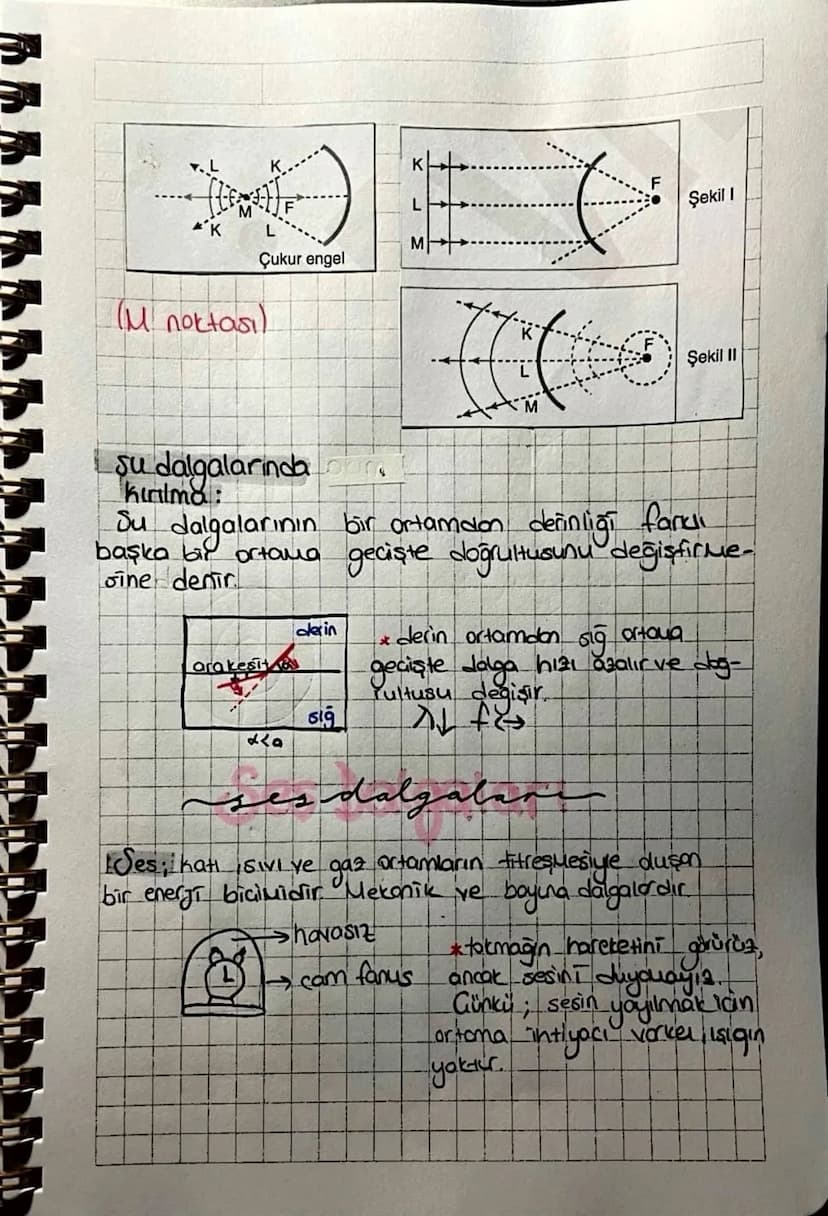 L K
M F
K L
Çukur engel
K
L
M
F
Şekil I
(M noktası)
K
L
M
F
Şekil II
Su dalgalarında
kırılma:
Su dalgalarının bir ortamdan derinliği farklı
başka bir ortama geçişte doğrultusunu değiştirme-
sine denir.
derin
arakesit
sığ
α<a
* derin ortamdan sığ ortama
geçişte dalga hızı azalır ve doğ-
rultusu değişir.
λ↓ f→
Ses Dalgaları
ses dalgaları
Ses; katı, sıvı ve gaz ortamların titreşmesiyle duşan
bir enerji biçimidir. Mekanik ve boyuna dalgalardır.
→ havasız
→ cam fanus
* tokmağın hareketini görürüz,
ancak sesini duymayız.
Çünkü; sesin yayılmak için
ortama intiyacı varken ışığın
yoktur.